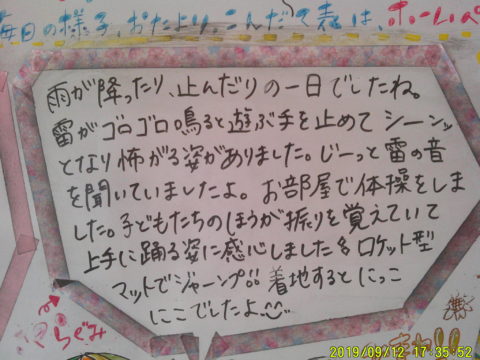 毎日の様子、おたより、こんだて表は、ホームペ
雨が降ったり、止んだりの一日でしたね。
雷がゴロゴロ鳴ると遊ぶ手を止めてシーンッ
となり怖がる姿がありました。じーっと雷の音
を聞いていましたよ。お部屋で体操をしま
した。子どもたちのほうが振りを覚えていて
上手に踊る姿に感心しました。ロケット型
マットでジャーンプ!!着地するとにっこ
にこでしたよ
ぐみ
2019/09/12 17:35:52